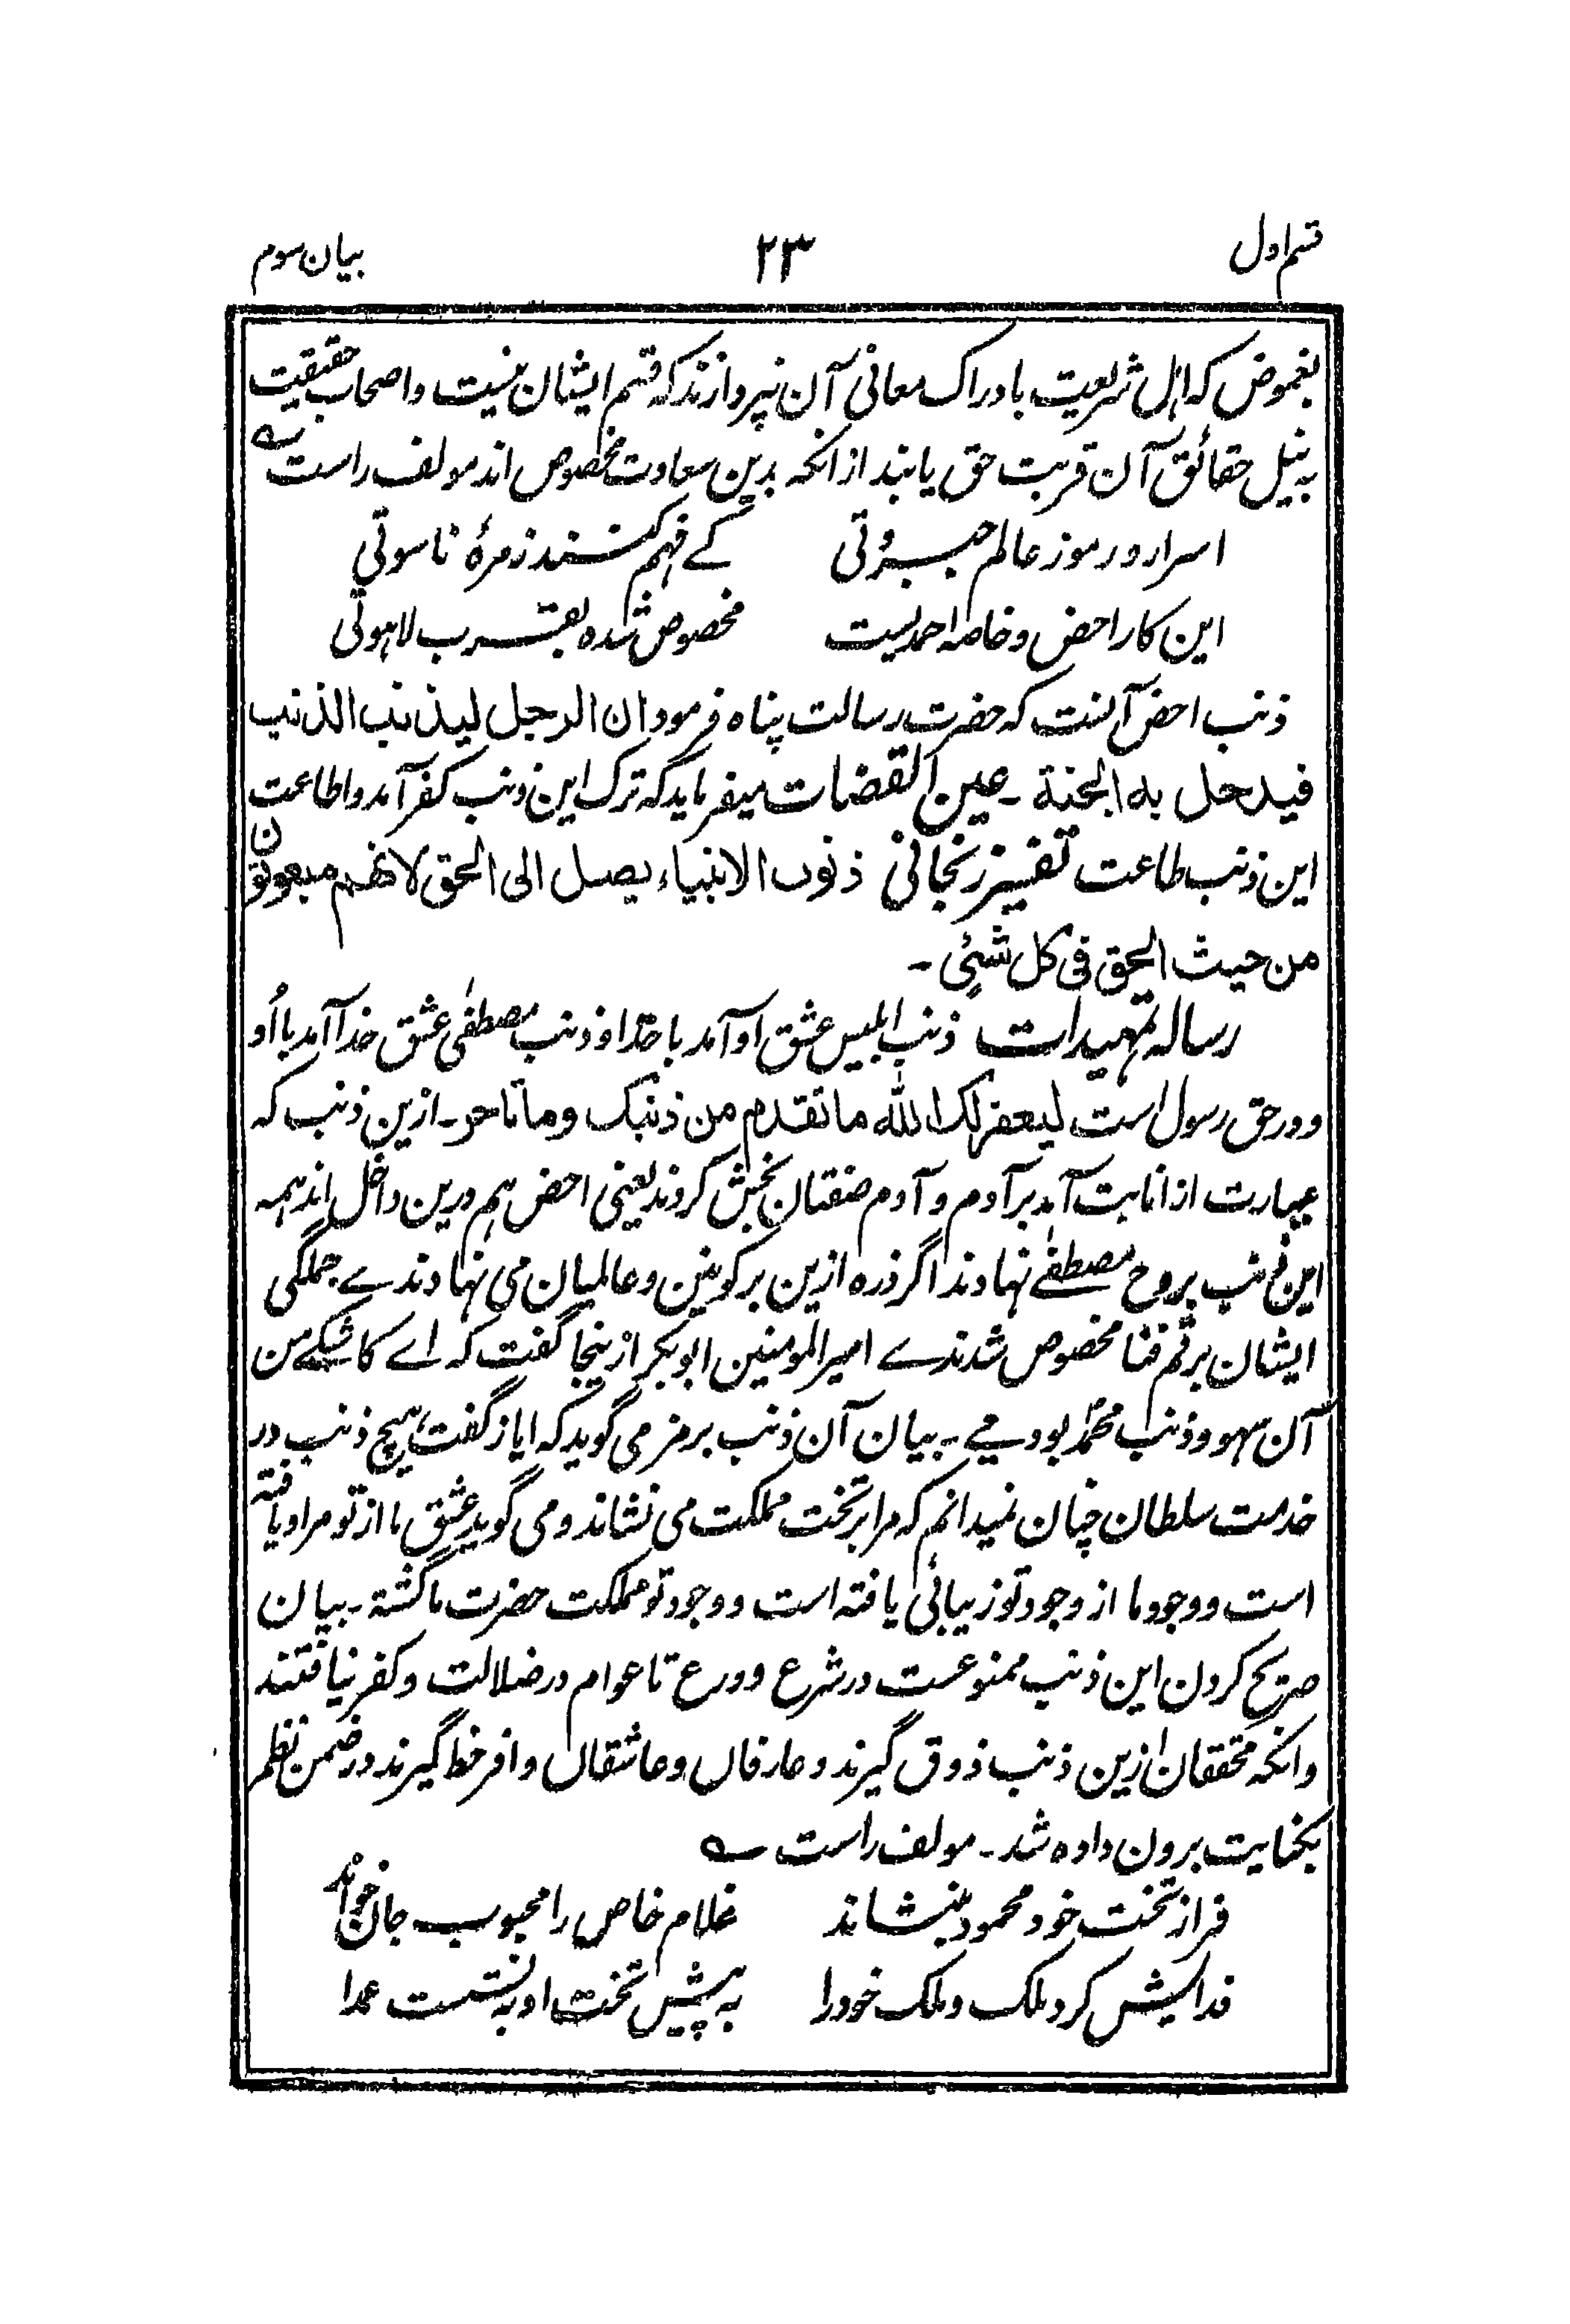 قسم اول ۲۳ بیان سوم
بغموض که اہل شریعت بادراک معانی آن نپروازند که قسم ایشان نیست و اصحاب حقیقت
به نیل حقائق آن قربت حق یابند از انکه بدین سعادت مخصوص اند مولف راست
اسرار و رموز عالم جبروتی کے فہم کنند زمرۂ ناسوتی
این کار اخص و خاصه احمدیست مخصوص شده بقرب لاہوتی
ذنب اخص آنست که حضرت رسالت پناه فرمود ان الرجل لیذنب الذنب
فیدخل به الجنة ۔ عین القضات میفرماید که ترک این ذنب کفر آمد و اطاعت
این ذنب طاعت تفسیر زنجانی ذنوب الانبیاء یصل الی الحق لانهم مبعوثون
من حیث الحق فی کل شئی ۔
رساله تمہیدات ذنب ابلیس عشق او آمد با خدا و ذنب مصطفٰی عشق خدا آمد با اُو
و در حق رسول است لیغفر لک الله ما تقدم من ذنبک وما تاخر ۔ ازین ذنب که
عبارت از انابت آمد بر آدم و آدم صفتان بخش کردند یعنی اخص ہم درین داخل اند ہمه
این ذنب بروح مصطفٰے نہادند اگر ذره ازین بر کونین و عالمیان می نہادندے جملگی
ایشان برقم فنا مخصوص شدندے امیر المومنین ابوبکر ازینجا گفت که اے کاشکے من
آن سہو و ذنب محمدؐ بودمے ۔ بیان آن ذنب برمز می گوید که ایاز گفت ہیچ ذنب در
خدمت سلطان چنان نمیدانم که مرا بر تخت مملکت می نشاند و می گوید عشق ما از تو مراد یافته
است و وجود ما از وجود تو زیبائی یافته است و وجود تو مملکت حضرت ما گشته ۔ بیان
صریح کردن این ذنب ممنوعست در شرع و ورع تا عوام در ضلالت و کفر نیافتند
وانکه محققان ازین ذنب ذوق گیرند و عارفان و عاشقان وافر حظ گیرند در ضمن نظم
بکنایت برون داده شد ۔ مولف راست
فراز تخت خود محمود بنشاند غلام خاص را محبوب جان خواند
فدایش کرد ملک و ملک خود را به پیش تخت او بنشست عمدا